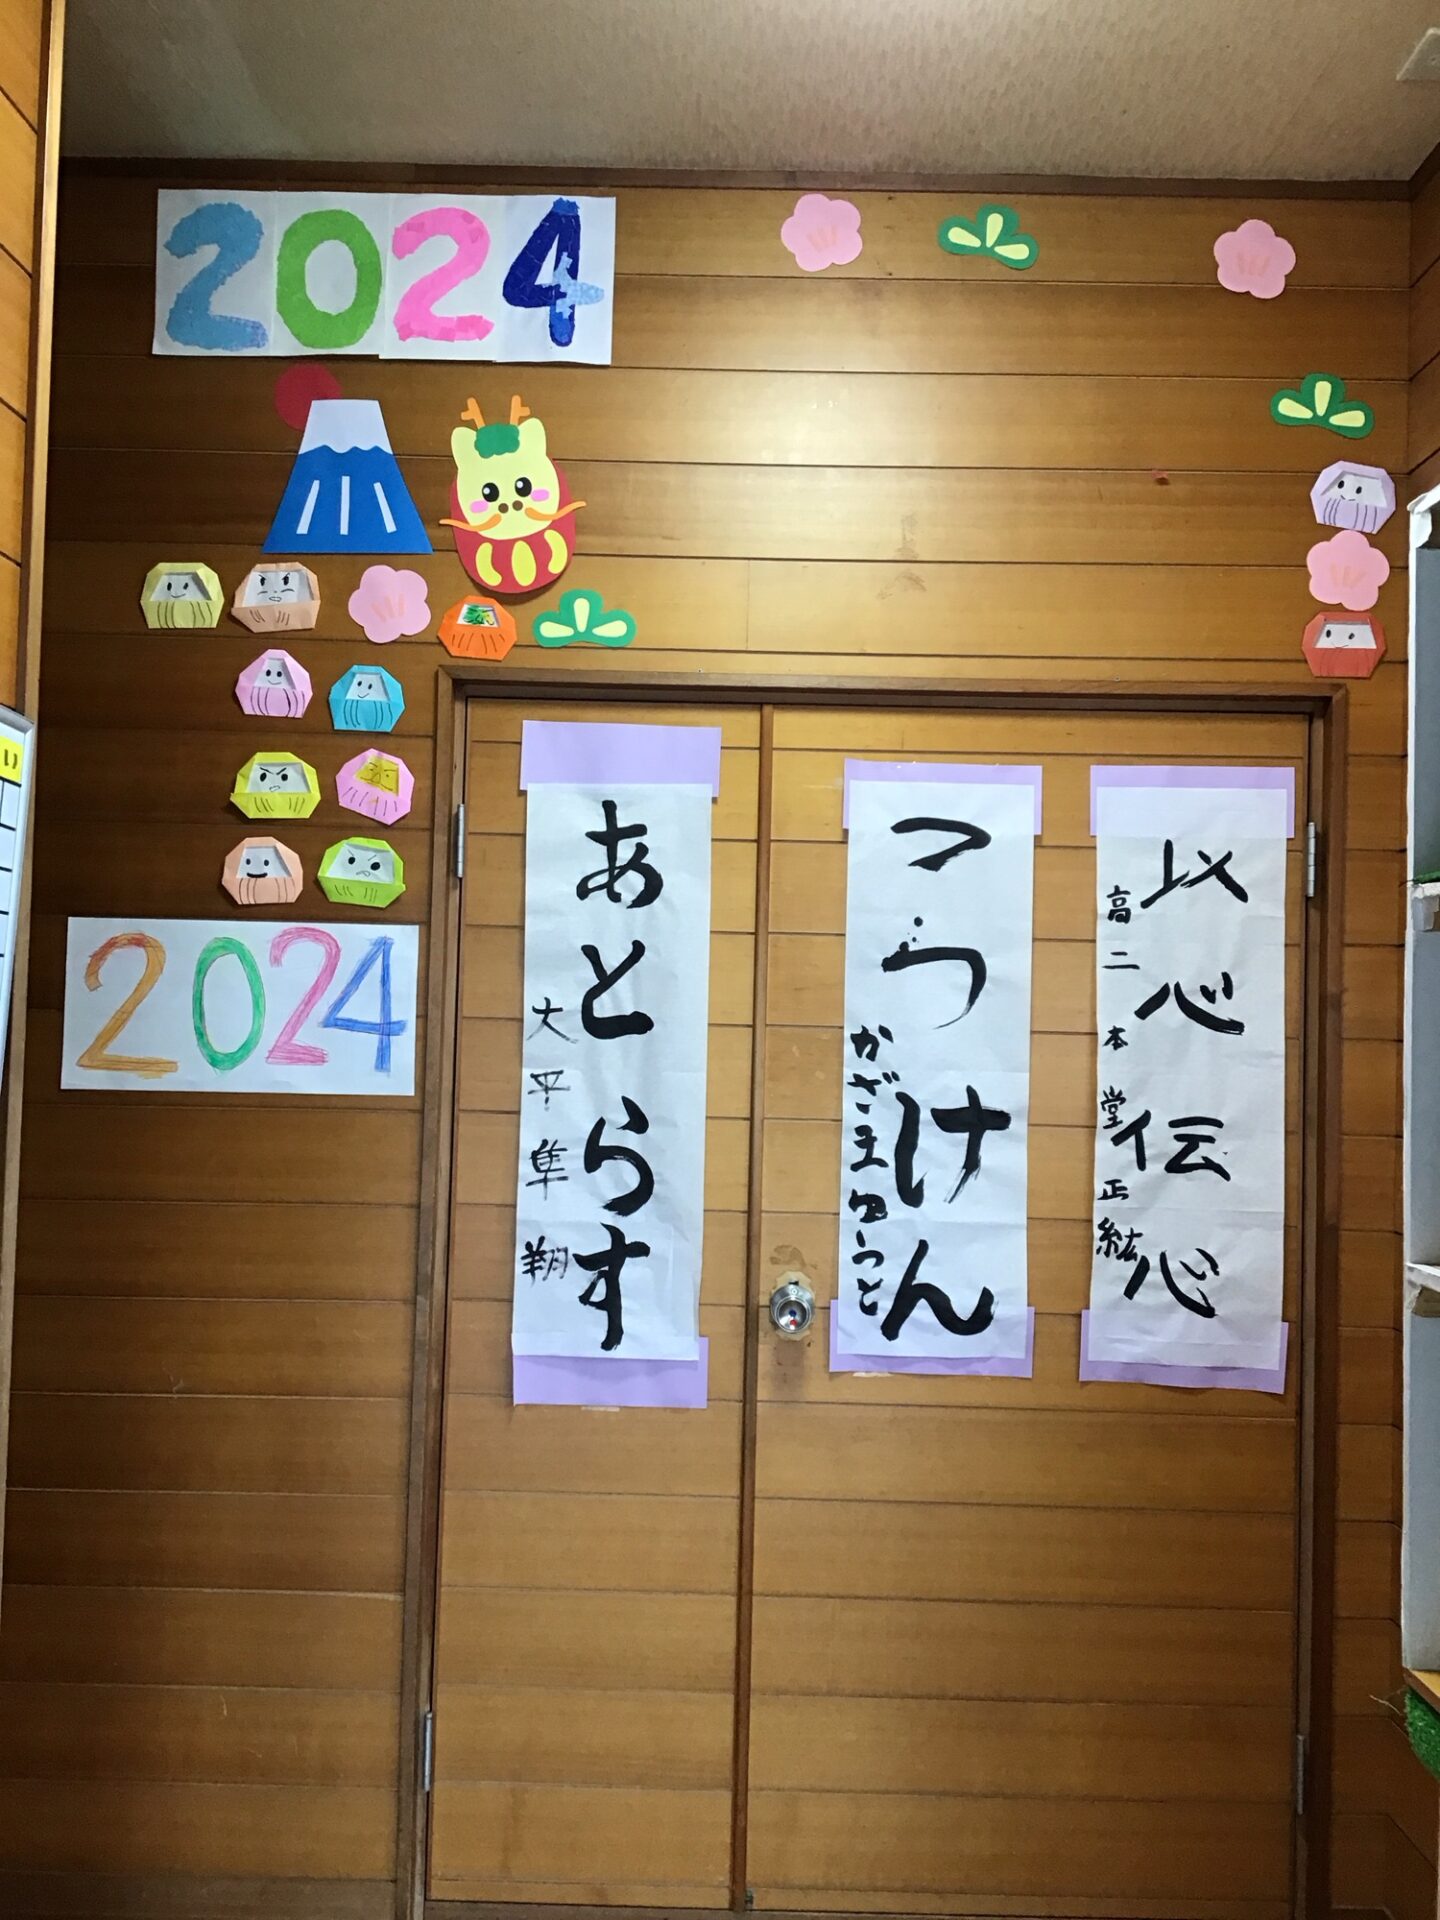 2024
2024
以心伝心
高二 本堂正紘
つうけん
かざまゆうと
あとらす
大平隼翔
い